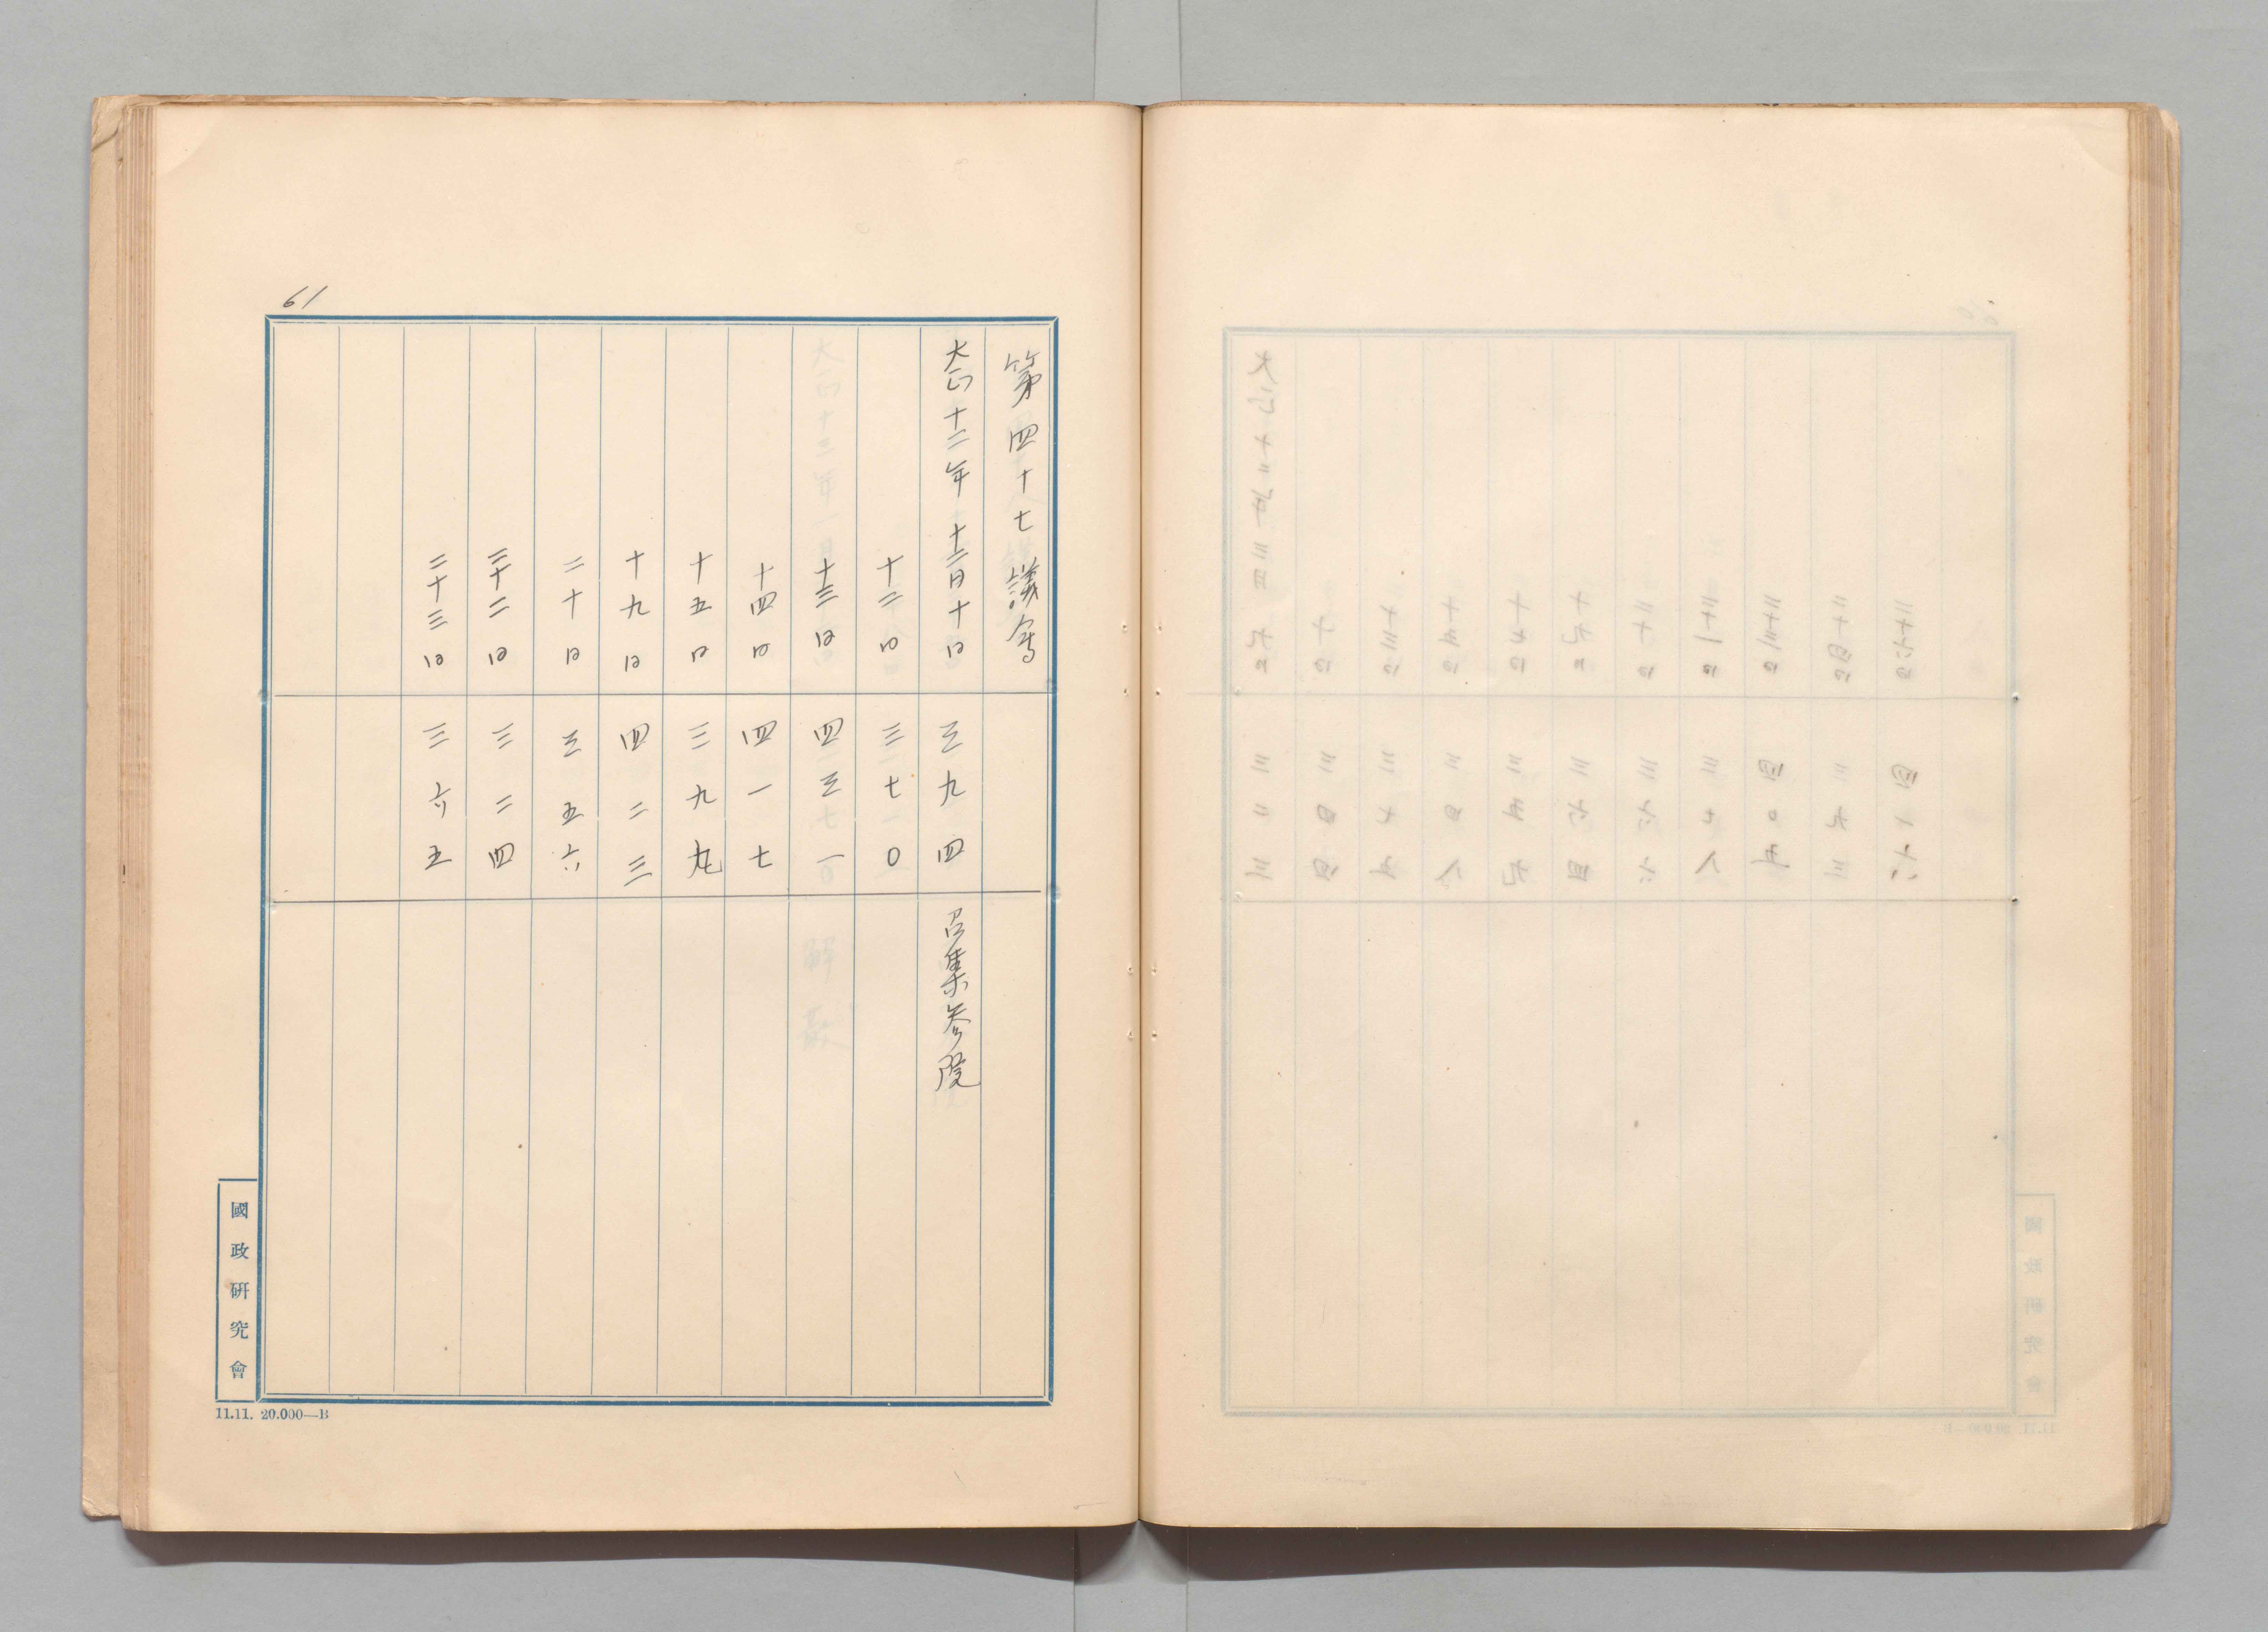 61
第四十七議會
大正十二年十二月十日 三九四 召集参院
十二日 三七〇
十三日 四三一
十四日 四一七
十五日 三九九
十九日 四二三
二十日 三五六
二十二日 三二四
二十三日 三六五
國政研究會
11.11. 20.000—B